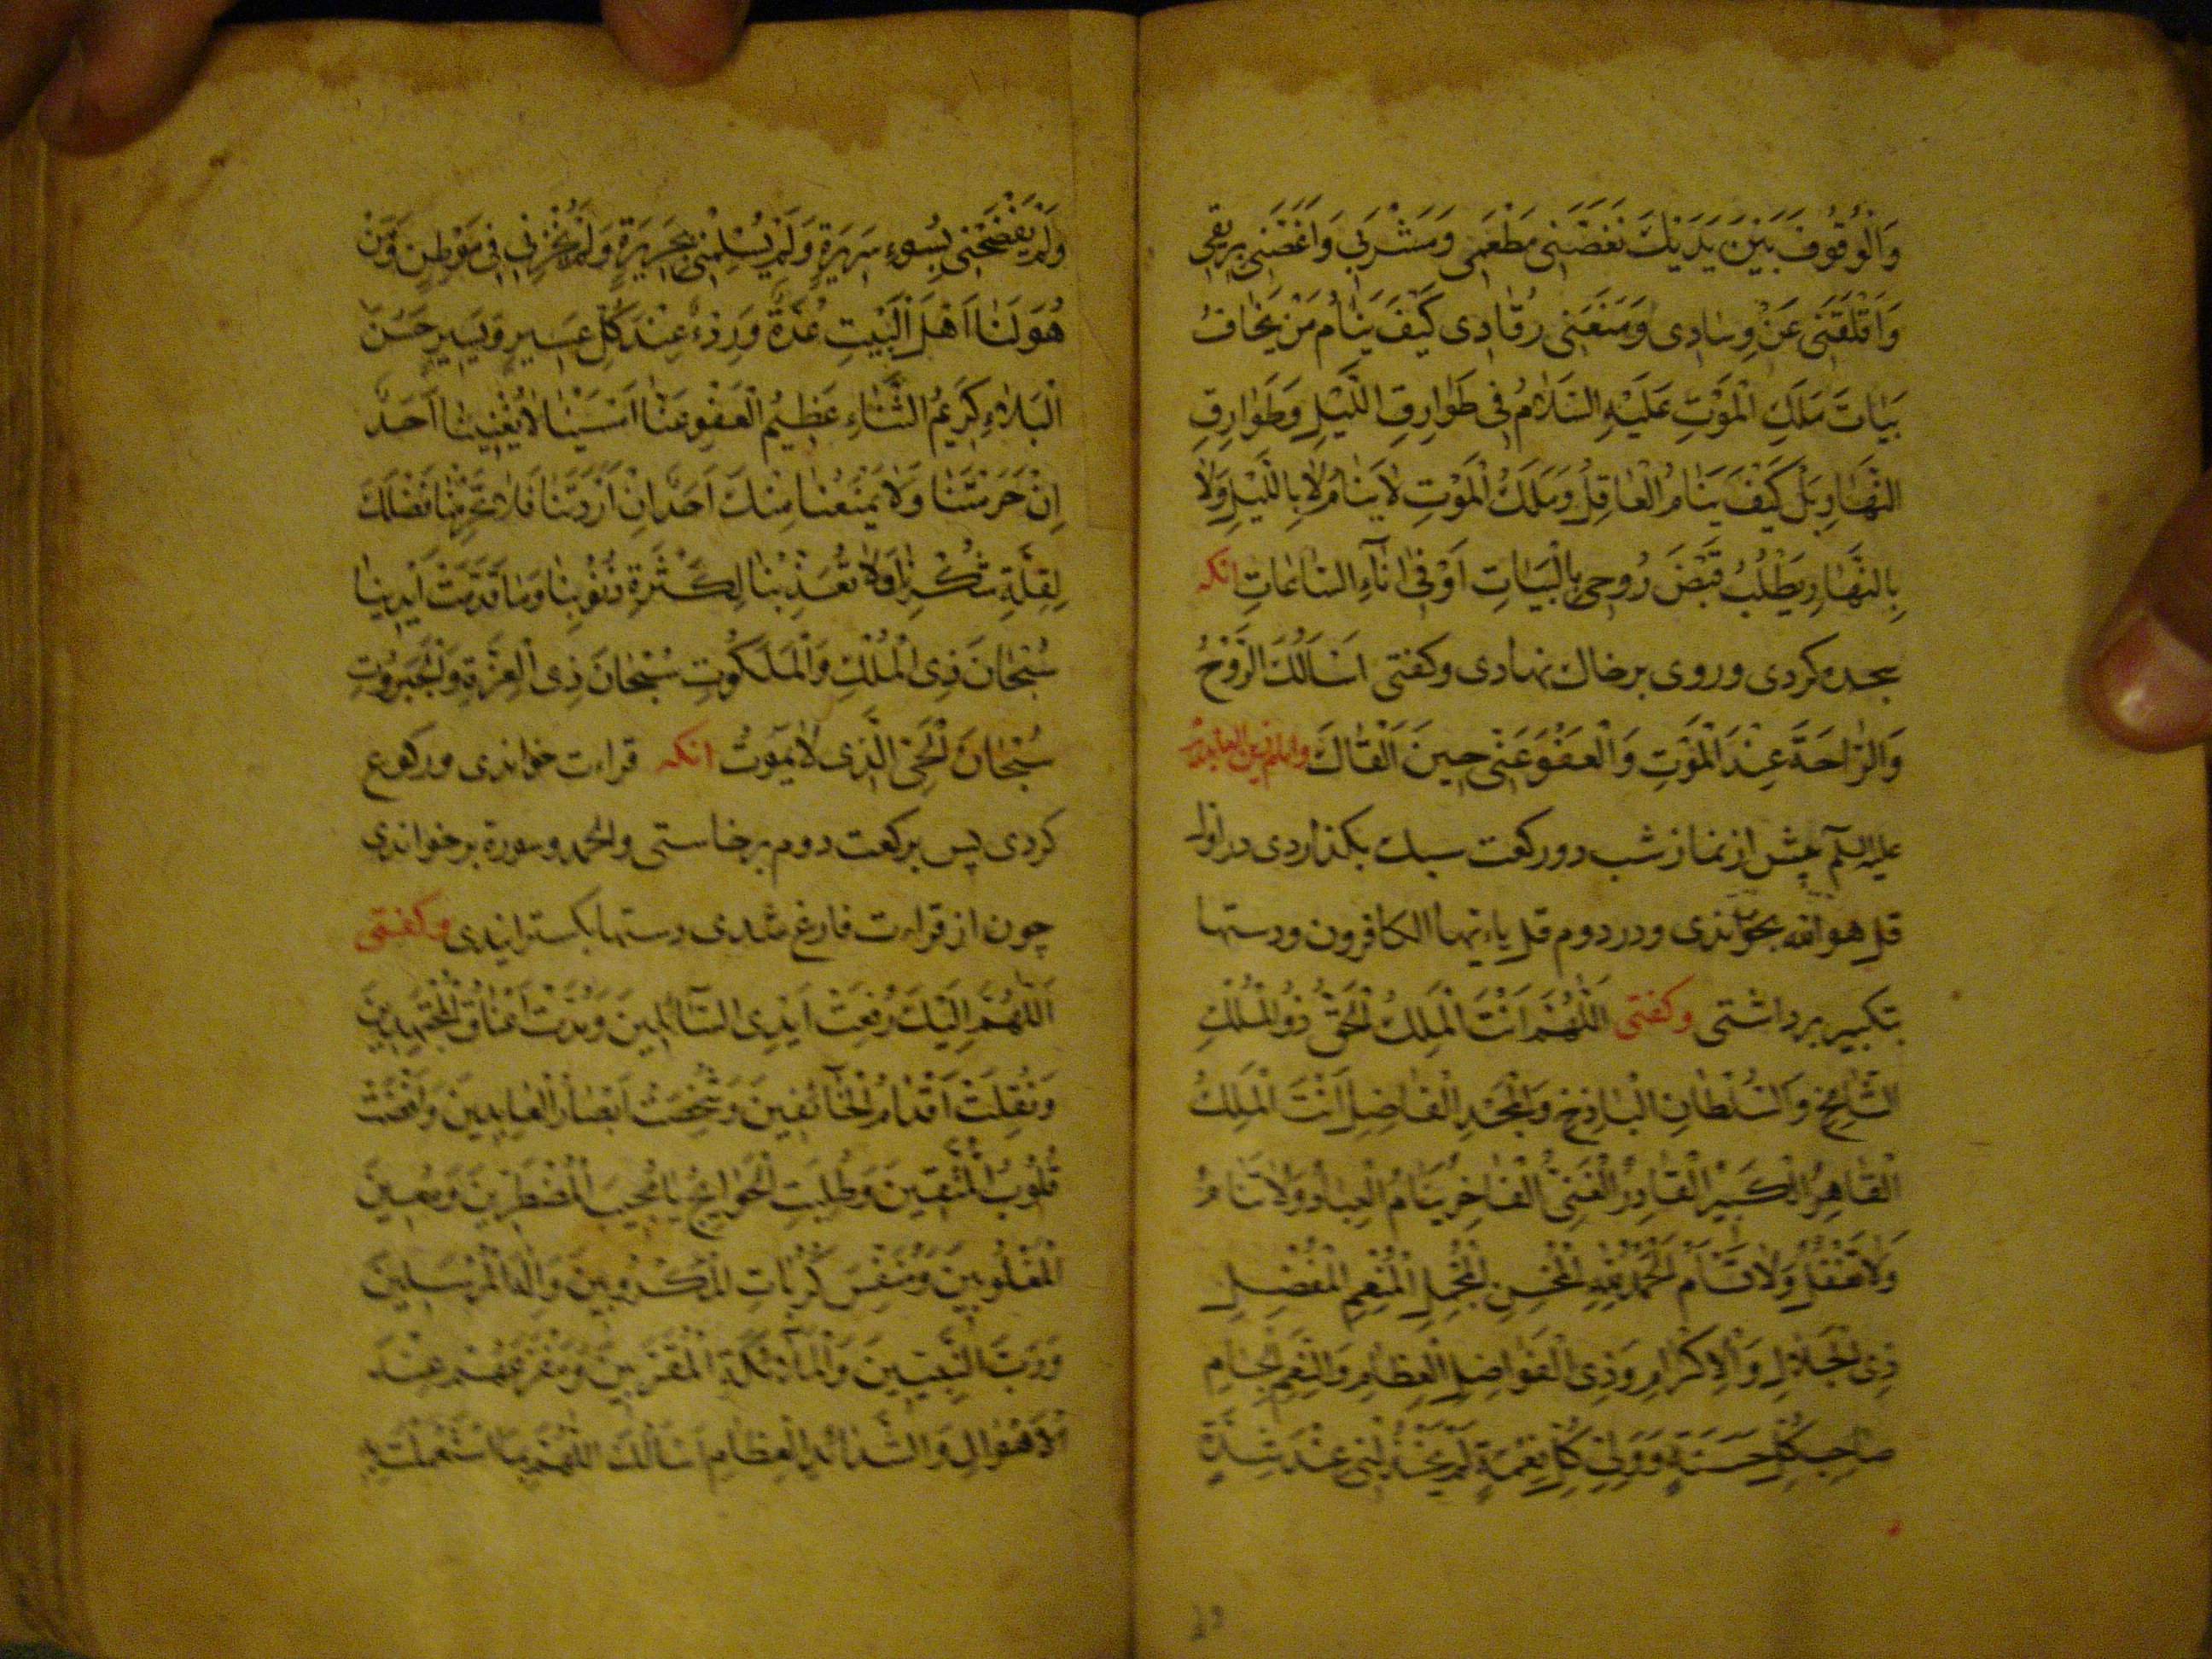 وَالْوُقُوفَ بَيْنَ يَدَيْكَ نَغَّصَنِي مَطْعَمِي وَمَشْرَبِي وَاَغَصَّنِي بِرِيقِي
وَاَقْلَقَنِي عَنْ وِسَادِي وَمَنَعَنِي رُقَادِي كَيْفَ يَنَامُ مَنْ يَخَافُ
بَيَاتَ مَلَكِ الْمَوْتِ عَلَيْهِ السَّلَامُ فِي طَوَارِقِ اللَّيْلِ وَطَوَارِقِ
النَّهَارِ بَلْ كَيْفَ يَنَامُ الْعَاقِلُ وَمَلَكُ الْمَوْتِ لَا يَنَامُ لَا بِاللَّيْلِ وَلَا
بِالنَّهَارِ يَطْلُبُ قَبْضَ رُوحِي بِالْبَيَاتِ اَوْ فِي اٰنَاءِ السَّاعَاتِ انكه
بجده كردى وروى برخاك نهادى وكفتى اَسْاَلُكَ الرَّوْحَ
وَالرَّاحَةَ عِنْدَ الْمَوْتِ وَالْعَفْوَ عَنِّي حِينَ اَلْقَاكَ وامام زين العابدين
عليه السلم پيش از نماز شب دو ركعت سبك بكذاردى در اول
قل هو الله بخواندى ودر دوم قل ياءيها الكافرون ودستها
بتكبير برداشتى وكفتى اَللّٰهُمَّ اَنْتَ الْمَلِكُ الْحَقُّ ذُو الْمُلْكِ
الشَّامِخِ وَالسُّلْطَانِ الْبَاذِخِ وَالْمَجْدِ الْفَاضِلِ اَنْتَ الْمَلِكُ
الْقَاهِرُ الْكَبِيرُ الْقَادِرُ الْغَنِيُّ الْفَاخِرُ يَنَامُ الْعِبَادُ وَلَا تَنَامُ
وَلَا تَغْفُلُ وَلَا تَسْاَمُ الْحَمْدُ لِلّٰهِ الْمُحْسِنِ الْمُجْمِلِ الْمُنْعِمِ الْمُفْضِلِ
ذِي الْجَلَالِ وَالْاِكْرَامِ وَذِي الْفَوَاضِلِ الْعِظَامِ وَالنِّعَمِ الْجِسَامِ
صَاحِبِ كُلِّ حَسَنَةٍ وَوَلِيِّ كُلِّ نِعْمَةٍ لَمْ يَخْذُلْنِي عِنْدَ شِدَّةٍ
وَلَمْ يَفْضَحْنِي بِسُوءِ سَرِيرَةٍ وَلَمْ يُسْلِمْنِي بِجَرِيرَةٍ وَلَمْ يُخْزِنِي فِي مَوْطِنٍ وَمَنْ
هُوَ لَنَا اَهْلَ الْبَيْتِ عُدَّةٌ وَرِدْءٌ عِنْدَ كُلِّ عَسِيرٍ وَيَسِيرٍ حَسَنُ
الْبَلَاءِ كَرِيمُ الثَّنَاءِ عَظِيمُ الْعَفْوِ عَنَّا اَمْسَيْنَا لَا يُغْنِينَا اَحَدٌ
اِنْ حَرَمْتَنَا وَلَا يَمْنَعُنَا مِنْكَ اَحَدٌ اِنْ اَرَدْتَنَا فَلَا تَحْرِمْنَا فَضْلَكَ
لِقِلَّةِ شُكْرِنَا وَلَا تُعَذِّبْنَا لِكَثْرَةِ ذُنُوبِنَا وَمَا قَدَّمَتْ اَيْدِينَا
سُبْحَانَ ذِي الْمُلْكِ وَالْمَلَكُوتِ سُبْحَانَ ذِي الْعِزَّةِ وَالْجَبَرُوتِ
سُبْحَانَ الْحَيِّ الَّذِي لَا يَمُوتُ انكه قراءت خواندى وركوع
كردى پس بركعت دوم برخاستى والحمد وسورة برخواندى
چون از قراءت فارغ شدى دستها بكسترانيدى وكفتى
اَللّٰهُمَّ اِلَيْكَ رُفِعَتْ اَيْدِي السَّائِلِينَ وَمُدَّتْ اَعْنَاقُ الْمُجْتَهِدِينَ
وَنُقِلَتْ اَقْدَامُ الْخَائِفِينَ وَشَخَصَتْ اَبْصَارُ الْعَابِدِينَ وَاَفْضَتْ
قُلُوبُ الْمُتَّقِينَ وَطُلِبَتِ الْحَوَائِجُ يَا مُجِيبَ الْمُضْطَرِّينَ وَمُعِينَ
الْمَغْلُوبِينَ وَمُنَفِّسَ كُرُبَاتِ الْمَكْرُوبِينَ وَاِلٰهَ الْمُرْسَلِينَ
وَرَبَّ النَّبِيِّينَ وَالْمَلَائِكَةِ الْمُقَرَّبِينَ وَمَفْزَعَهُمْ عِنْدَ
الْاَهْوَالِ وَالشَّدَائِدِ الْعِظَامِ اَسْاَلُكَ اللّٰهُمَّ بِمَا اسْتَعْمَلْتَ بِهِ